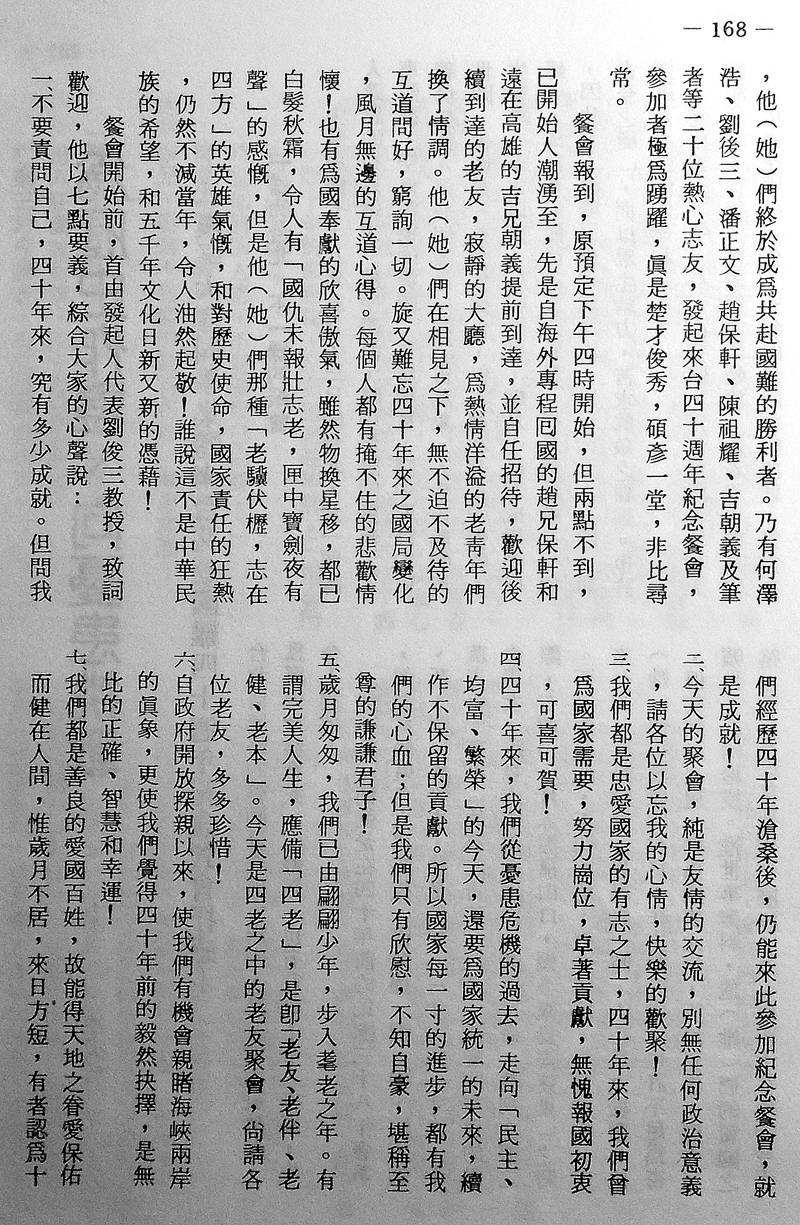 — 168 —
，他（她）們終於成爲共赴國難的勝利者。乃有何澤
浩、劉後三、潘正文、趙保軒、陳祖耀、吉朝義及筆
者等二十位熱心志友，發起來台四十週年紀念餐會，
參加者極爲踴躍，眞是楚才俊秀，碩彥一堂，非比尋
常。
餐會報到，原預定下午四時開始，但兩點不到，
已開始人潮湧至，先是自海外專程回國的趙兄保軒和
遠在高雄的吉兄朝義提前到達，並自任招待，歡迎後
續到達的老友，寂靜的大廳，爲熱情洋溢的老靑年們
換了情調。他（她）們在相見之下，無不迫不及待的
互道問好，窮詢一切。旋又難忘四十年來之國局變化
，風月無邊的互道心得。每個人都有掩不住的悲歡情
懷！也有爲國奉獻的欣喜傲氣，雖然物換星移，都已
白髮秋霜，令人有「國仇未報壯志老，匣中寶劍夜有
聲」的感慨，但是他（她）們那種「老驥伏櫪，志在
四方」的英雄氣慨，和對歷史使命，國家責任的狂熱
，仍然不減當年，令人油然起敬！誰說這不是中華民
族的希望，和五千年文化日新又新的憑藉！
餐會開始前，首由發起人代表劉俊三教授，致詞
歡迎，他以七點要義，綜合大家的心聲說：
一、不要責問自己，四十年來，究有多少成就。但問我
們經歷四十年滄桑後，仍能來此參加紀念餐會，就
是成就！
二、今天的聚會，純是友情的交流，別無任何政治意義
，請各位以忘我的心情，快樂的歡聚！
三、我們都是忠愛國家的有志之士，四十年來，我們曾
爲國家需要，努力崗位，卓著貢獻，無愧報國初衷
，可喜可賀！
四、四十年來，我們從憂患危機的過去，走向「民主、
均富、繁榮」的今天，還要爲國家統一的未來，續
作不保留的貢獻。所以國家每一寸的進步，都有我
們的心血；但是我們只有欣慰，不知自豪，堪稱至
尊的謙謙君子！
五、歲月匆匆，我們已由翩翩少年，步入耄老之年。有
謂完美人生，應備「四老」，是卽「老友、老伴、老
健、老本」。今天是四老之中的老友聚會，尙請各
位老友，多多珍惜！
六、自政府開放探親以來，使我們有機會親睹海峽兩岸
的眞象，更使我們覺得四十年前的毅然抉擇，是無
比的正確、智慧和幸運！
七、我們都是善良的愛國百姓，故能得天地之眷愛保佑
而健在人間，惟歲月不居，來日方短，有者認爲十